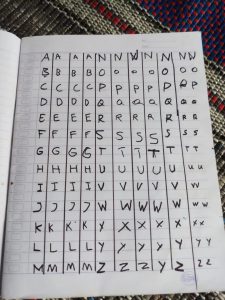 A A A A N N W N N N W
B B B B O O O O O O O
C C C C P P P P P P P
D D D D Q Q Q Q Q Q Q
E E E E R R R R R R R
F F F F S S S S S S S
G G G G T T T T T T T
H H H H U U U U U u u
I I I I V V V V V v v
J J J J W W W W W w w
K K K K X X X X X x x
L L L L Y Y Y Y Y y y
M M M M Z Z Z Y Z z z